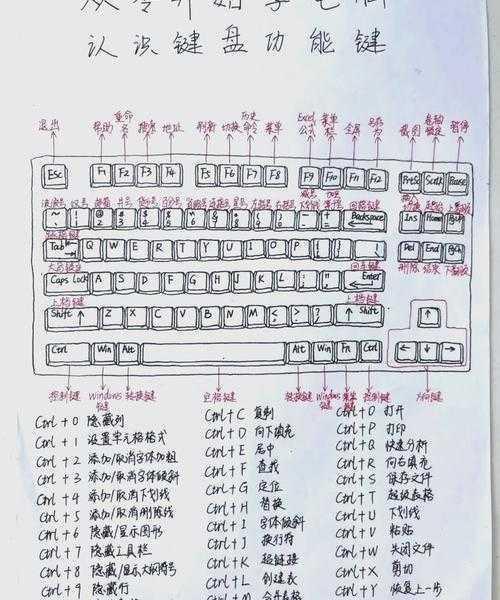 从零开始学电脑
认识键盘功能键
退出 帮助 重命名 搜索 地址 刷新 切换 历史命令 菜单 Excel公式 菜单栏 全屏 另存为 截图 滚轴锁定 暂停
Esc F1 F2 F3 F4 F5 F6 F7 F8 F9 F10 F11 F12 PrtSc ScrLk Pause
~ ! @ 2 # 3 $ 4 % 5 ^ 6 & 7 * 8 ( 9 ) 0 - + = Backspace Ins Home PgUp
Tab Q W E R T Y U I O P { [ } ] Del End PgDn
删除 结束 下翻页
大写锁定 回车键
Caps Lock A S D F G H J K L : ; Enter
上档键 上档键
Shift ↑ Z X C V B N M < > ? ↑ Shift ↑
Ctrl Win Alt Alt Win Fn Ctrl ← ↓ →
控制键 Windows键 转换键 空格键 转换键 Windows键 菜单键 控制键 方向键
Ctrl + 0 隐藏列 Ctrl + C 复制 Ctrl + O 打开
Ctrl + 1 设置单元格格式 Ctrl + D 向下填充 Ctrl + P 打印
Ctrl + 2 添加/取消字体加粗 Ctrl + E 居中 Ctrl + Q 快速分析
Ctrl + 3 添加/取消字体倾斜 Ctrl + F 查找 Ctrl + R 向右填充
Ctrl + 4 添加/取消下划线 Ctrl + G 定位 Ctrl + S 保存文件
Ctrl + 5 添加/取消删除线 Ctrl + H 替换 Ctrl + T 超级表格
Ctrl + 6 隐藏/显示图形 Ctrl + I 字体倾斜 Ctrl + U 下划线
Ctrl + 7 隐藏工具栏 Ctrl + J 换行符 Ctrl + V 粘贴
Ctrl + 8 隐藏/显示大纲符号 Ctrl + K 超链接 Ctrl + W 关闭文件
Ctrl + 9 隐藏行 Ctrl + L 创建表 Ctrl + X 剪切
Ctrl + M 合并表格 Ctrl + Y 恢复上一步